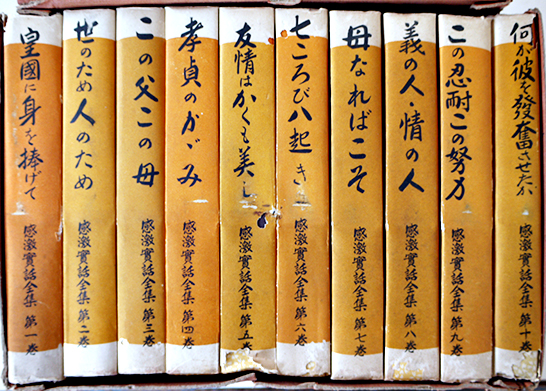 皇國に身を捧げて
感激實話全集 第一巻
世のため人のため
感激實話全集 第二巻
この父この母
感激實話全集 第三巻
孝貞のかゞみ
感激實話全集 第四巻
友情はかくも美し
感激實話全集 第五
七ころび八起き
感激實話全集 第六巻
母なればこそ
感激實話全集 第七巻
義の人・情の人
感激實話全集 第八巻
この忍耐この努力
感激實話全集 第九巻
何が彼を發奮させたか
感激實話全集 第十巻